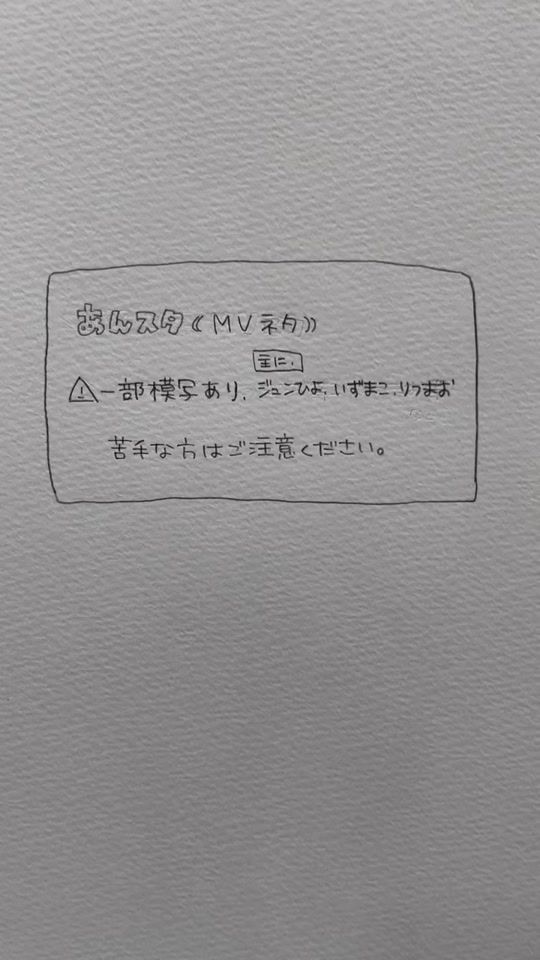 あんスタ《MVネタ》
主に、
⚠一部模写あり、ジュンひよ、いずまこ、りつまお
苦手な方はご注意ください。